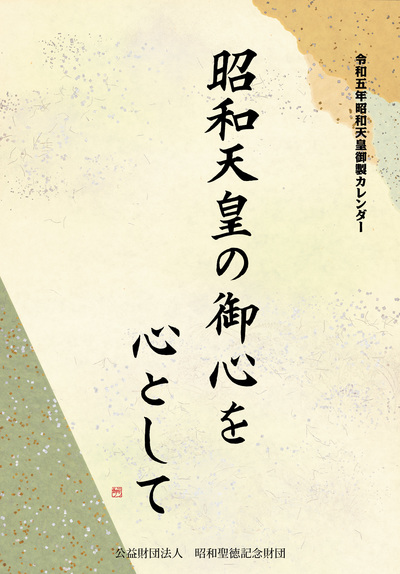 令和五年昭和天皇御製カレンダー
昭和天皇の御心を
心として
公益財団法人　昭和聖徳記念財団